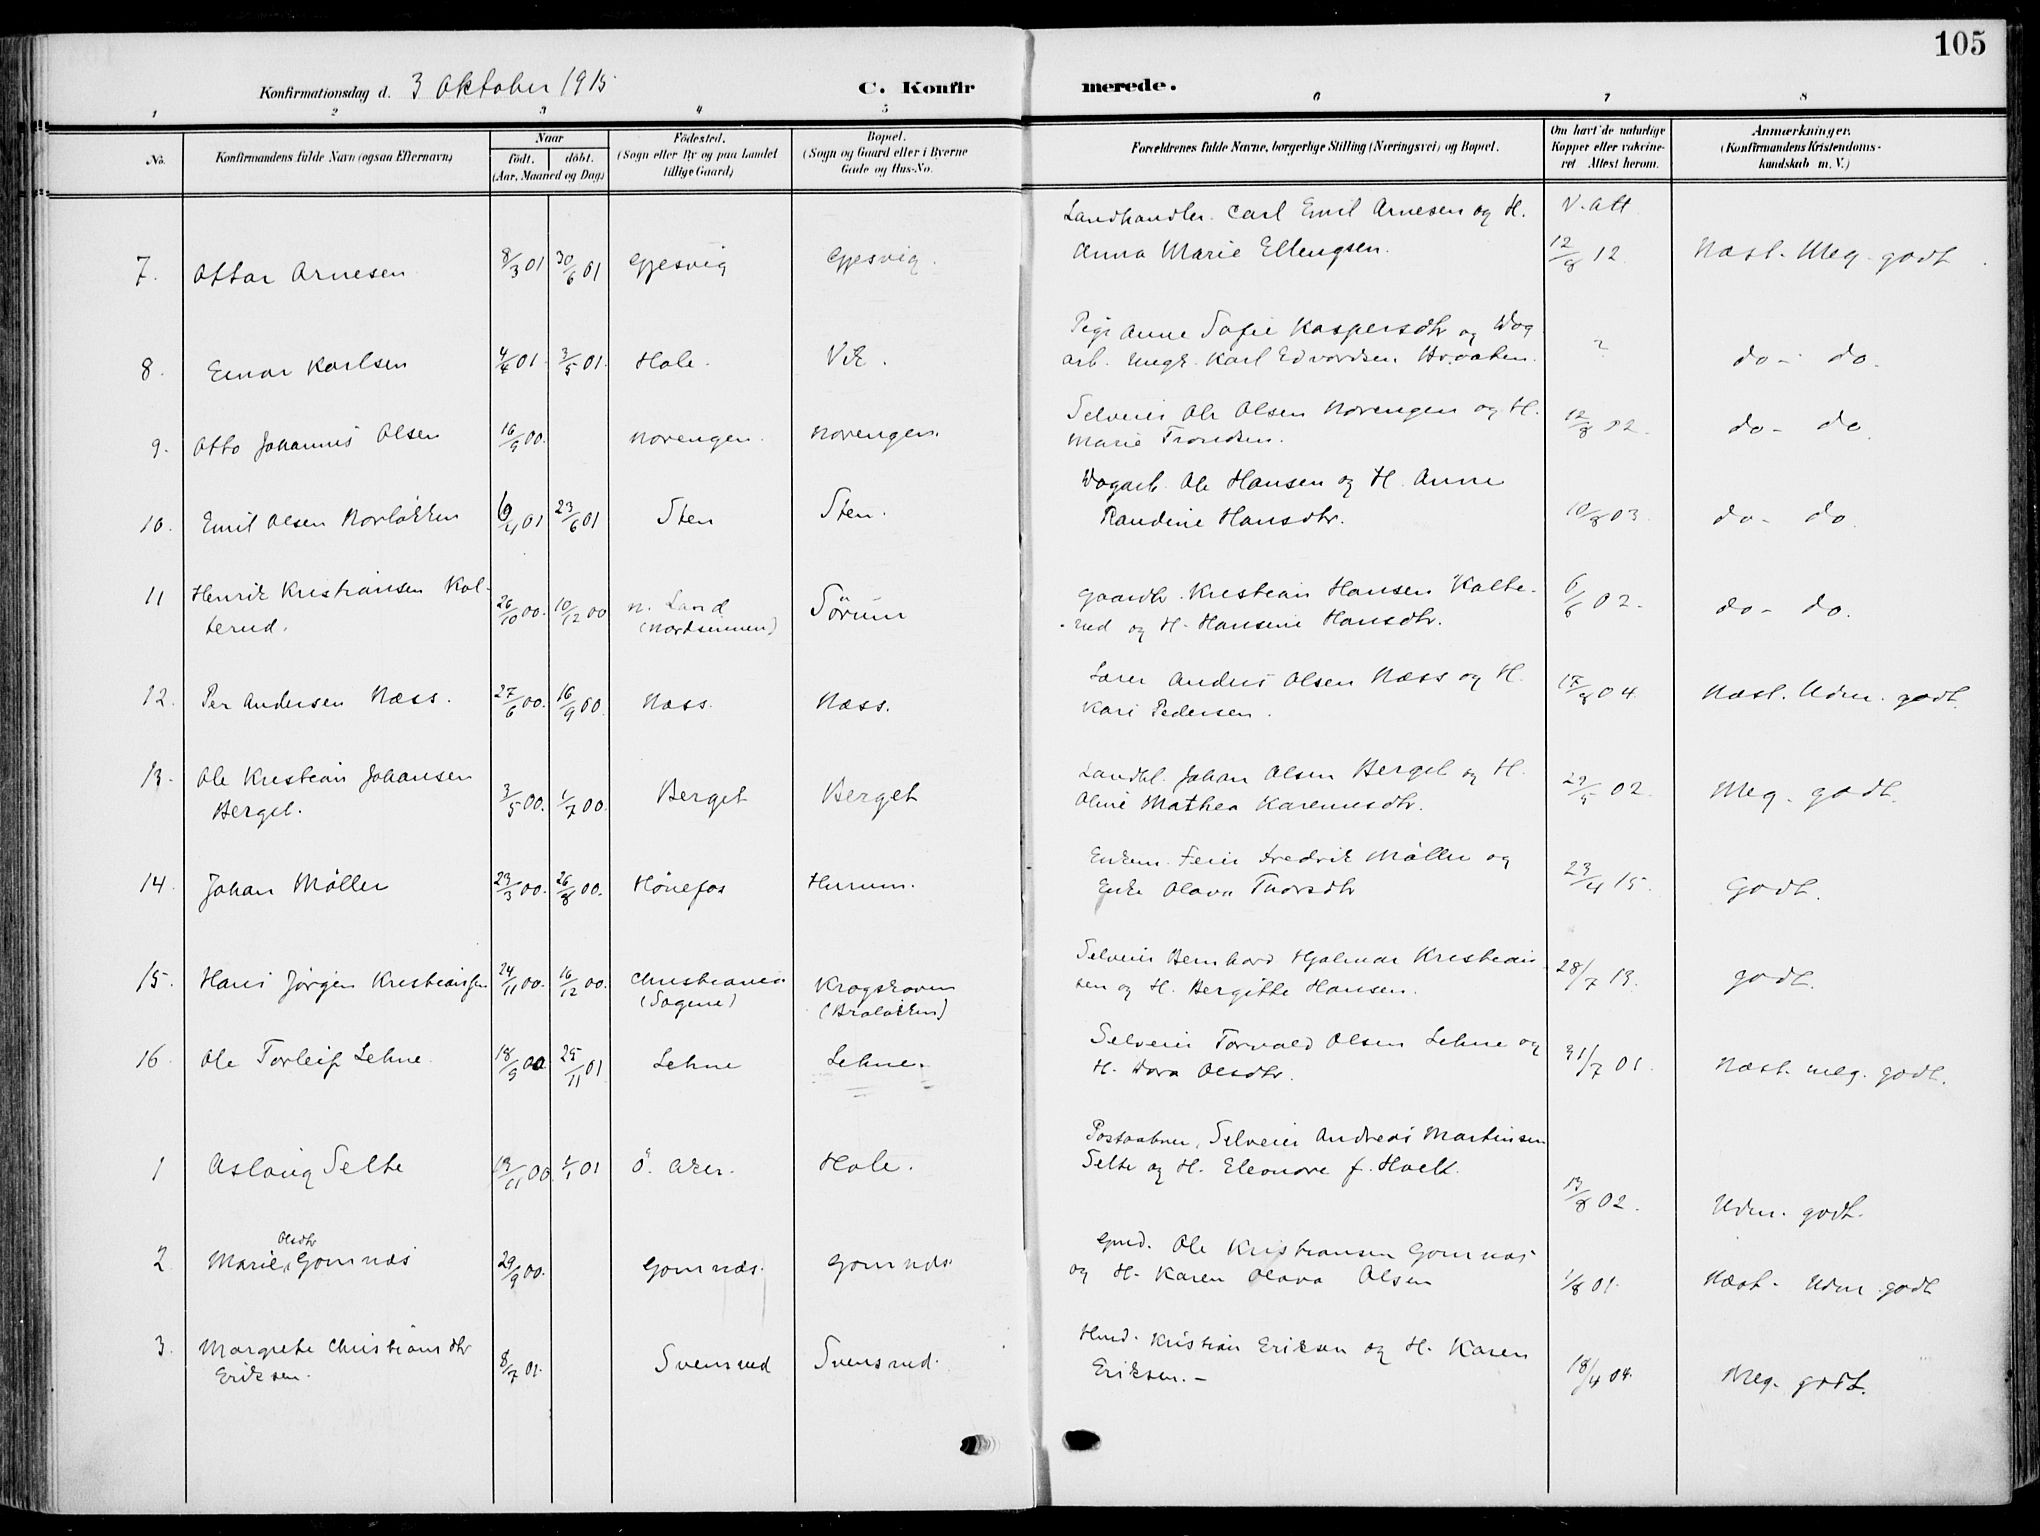 105
Konfirmationsdag d. 3 Oktober 1915 C. Konfirmerede.
1 2 3 4 5 6 7 8
No. Konfirmandens fulde Navn (ogsaa Efternavn) Naar født. døbt. (Aar, Maaned og Dag) Fødested. (Sogn eller By og paa Landet tillige Gaard) Bopæl. (Sogn og Gaard eller i Byerne Gade og Hus-No. Forældrenes fulde Navne, borgerlige Stilling (Næringsvei) og Bopæl. Om havt de naturlige Kopper eller vakcineret Attest herom. Anmærkninger. (Konfirmandens Kristendomskundskab m. V.)
Landhandler. Carl Emil Arnesen og H. V. att
7. Ottar Arnesen 8/3 01 30/6 01 Gjesvig Gjesvig. Anna Marie Ellengsen. 12/8 12. Næst. Meg. godt.
Pige Anne Sofie Kaspersdtr og Dag
8. Einar Karlsen 4/4 01. 3/5 01. Hole. Vik. arb. Ungk. Karl Edvardsen Braaten. do - do.
Selveier Ole Olsen Norengen og H.
9. Otto Johannes Olsen 16/9 00. Norengen. Norengen. Marie Trondsen. 12/8 12. do - do
Dagarb. Ole Hansen og H. Anne
10. Emil Olsen Norløkken 6/4 01 23/6 01 Sten Sten. Randine Hansdtr. 10/8 03. do - do.
11 Henrik Kristiansen Kol- gaardbr. Kristian Hansen Kolte-
terud. 26/10 00. 10/12 00 N. Land (Nordsinnen) Sørum rud og H. Hansine Hansdtr. 6/6 02. do - do.
Lærer Anders Olsen Næss og H.
12. Per Andersen Næss. 27/6 00. 16/9 00. Næss. Næss. Kari Pedersen. 17/8 04. Næst. Udm. godt.
13. Ole Kristian Johansen Landhl. Johan Olsen Berget og H.
Berget. 3/5 00. 1/7 00. Berget Berget Oline Mathea Karenusdtr. 29/5 02. Meg. godt.
Enkem. Feier Fredrik Møller og
14. Johan Møller 23/3 00. 26/8 00. Hønefos Hurum. Enke Olava Thorsdtr 23/4 15. Godt.
Selveier Bernhard Hjalmar Kristian-
15. Hans Jørgen Kristiansen 24/11 00. 16/12 00. Christiania (Sagene) Krogskoven (Braløkken) sen og H. Bergitte Hansen. 28/7 13. godt.
Selveier Torvald Olsen Lehne og
16. Ole Torleif Lehne. 18/9 00 25/11 01 Lehne Lehne. H. Dora Olsdtr. 31/7 01. Næst. meg. godt.
Postaabner, Selveier Andreas Martinsen
1 Aslaug Selte 13/11 00 1/1 01 Ö. Aker. Hole. Selte og H. Eleonore f. Holt.
13/8 02. Udm. godt.
Olsdtr Gmd. Ole Kristiansen Gomnæs
2 Marie, Gomnæs 29/9 00. Gomnæs. Gomnæs og H. Karen Olava Olsen 1/8 01. Næst. Udm. godt
3. Margrete Christiansdtr Hmd. Kristian Eriksen og H. Karen
Eriksen. 8/7 01. Svensrud Svensrud. Eriksen. - 18/4 04. Meg. godt.